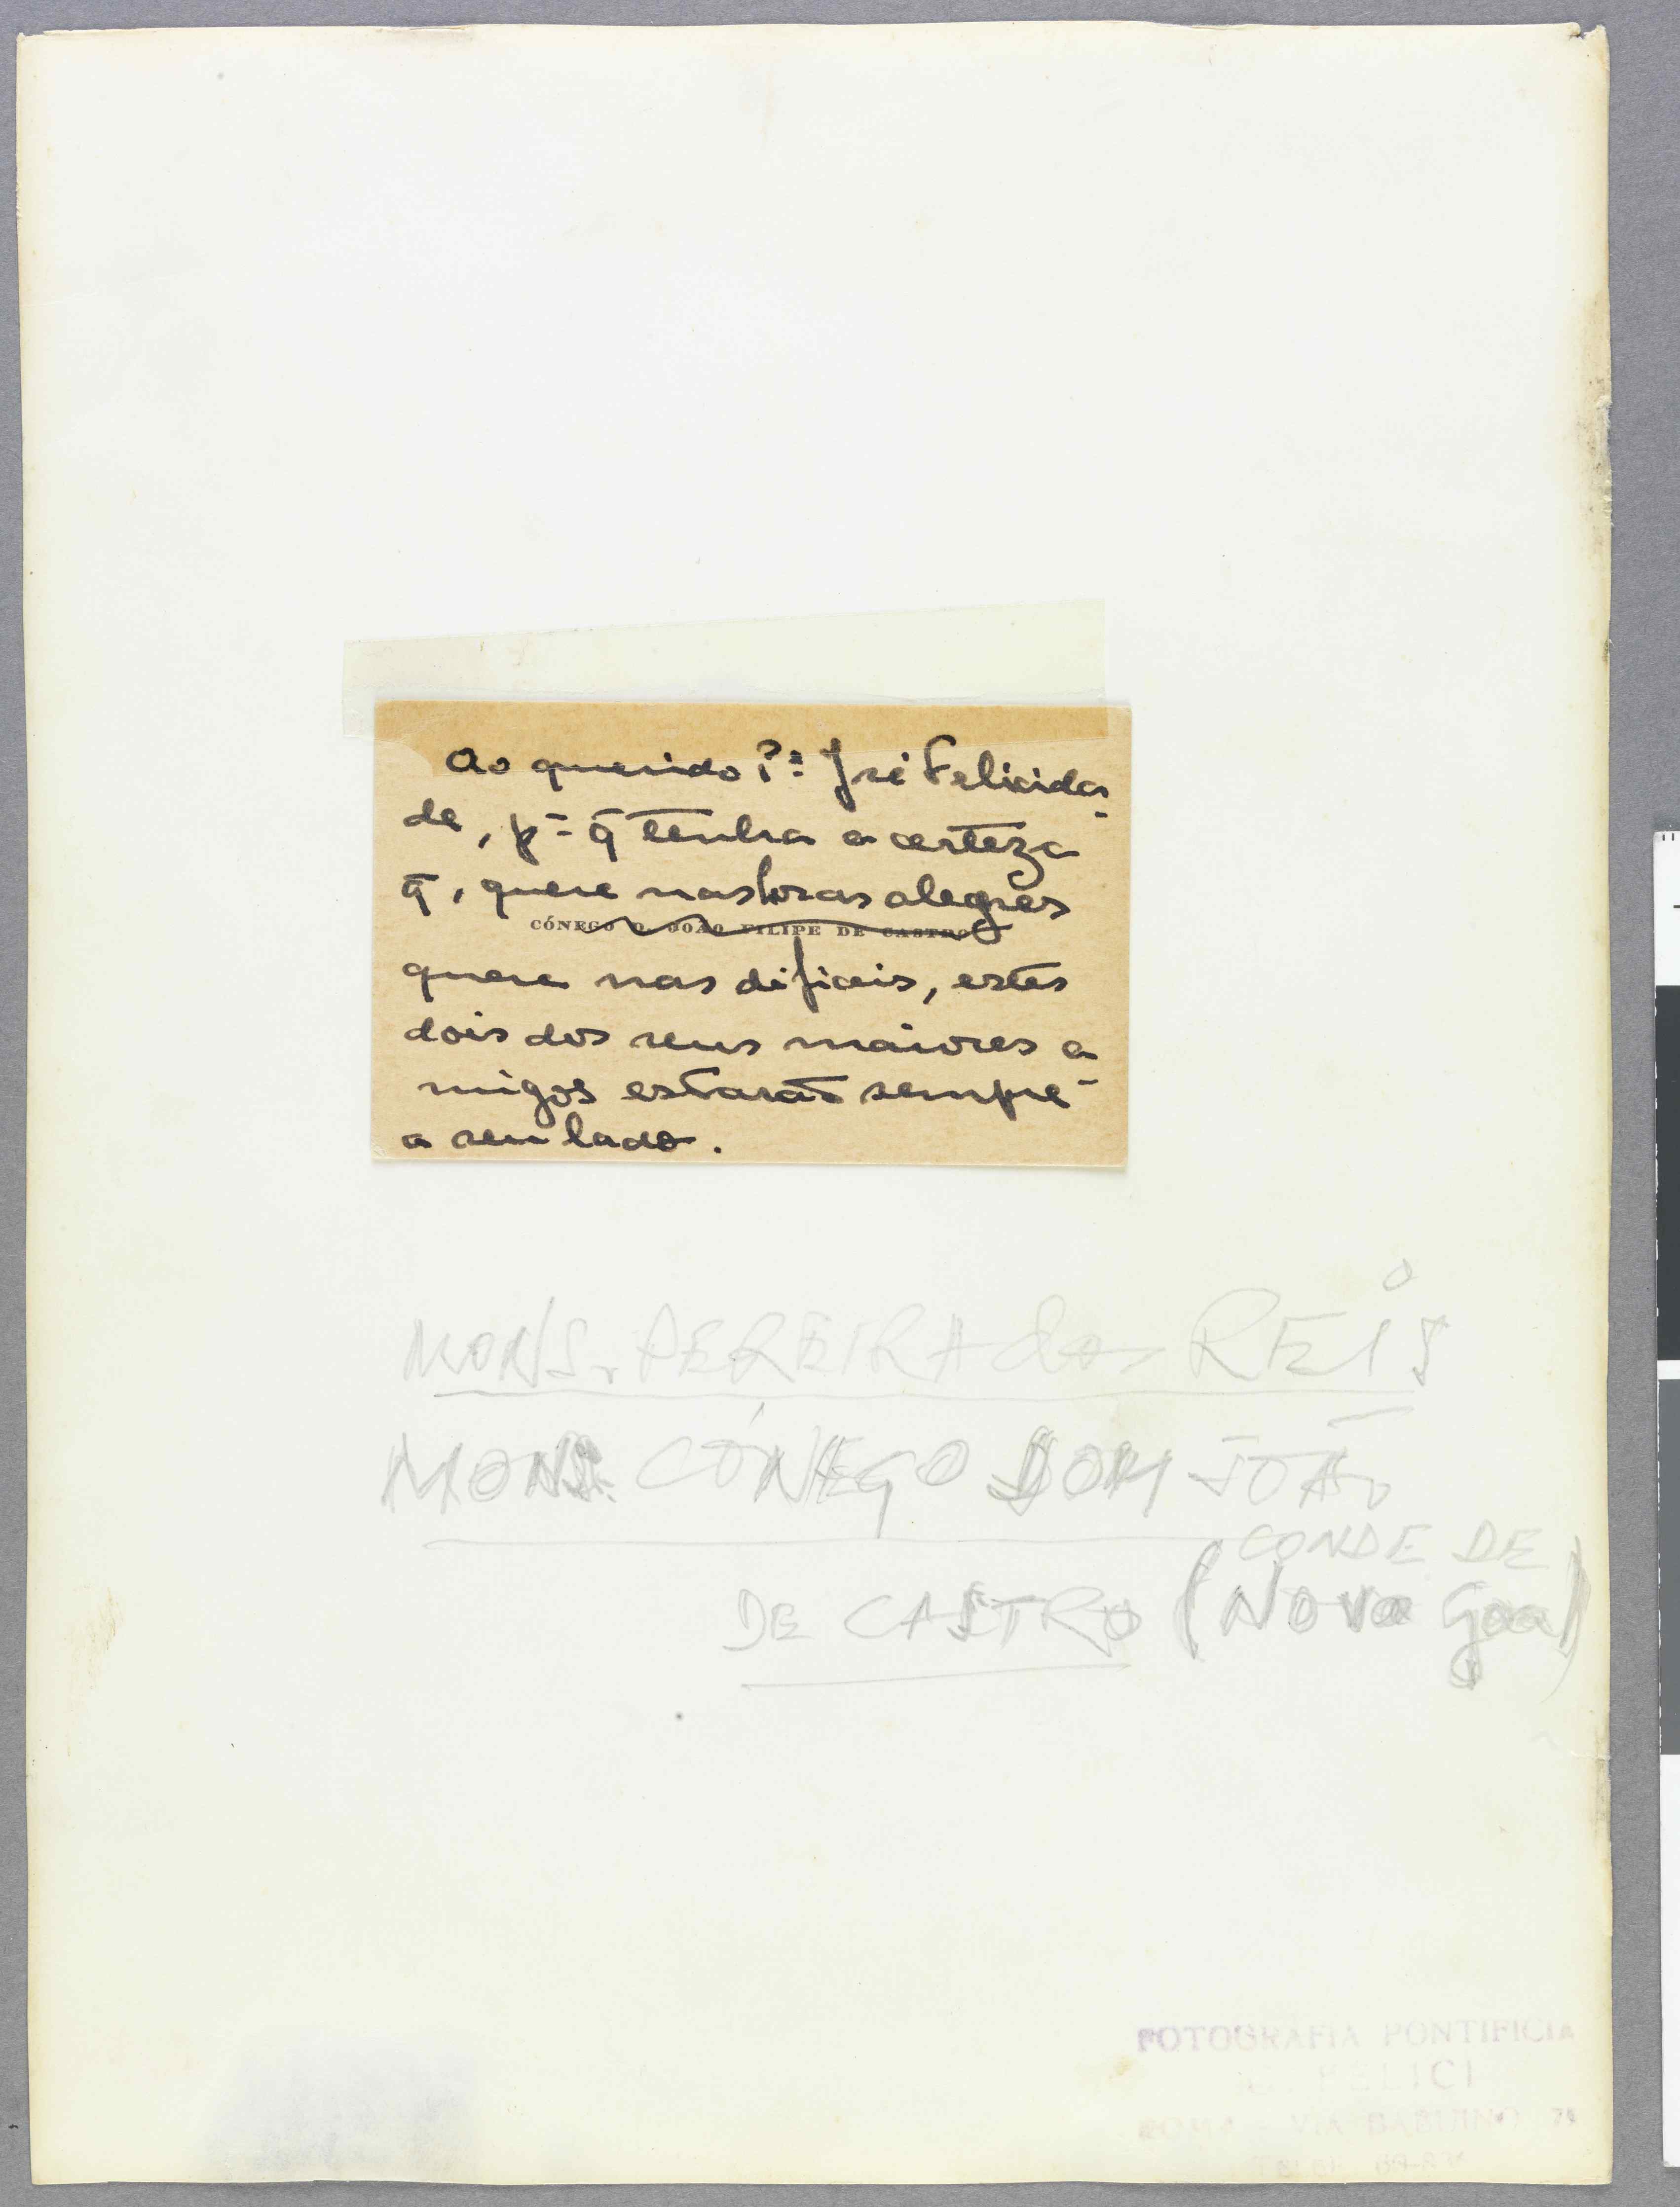 Ao querido P.e José Felicida-
de, p.a q̄ tenha a certeza
q̄, quere nas horas alegres
CÓNEGO D. JOÃO FILIPE DE CASTRO
quere nas dificeis, estes
dois dos seus maiores a-
migos estarão sempre
a seu lado.
MONS. PEREIRA dos REIS
MONS. CÓNEGO DOM JOÃO
DE CASTRO (CONDE DE
Nova Goa)
FOTOGRAFIA PONTIFICIA
FELICI
ROMA - VIA BABUINO 74